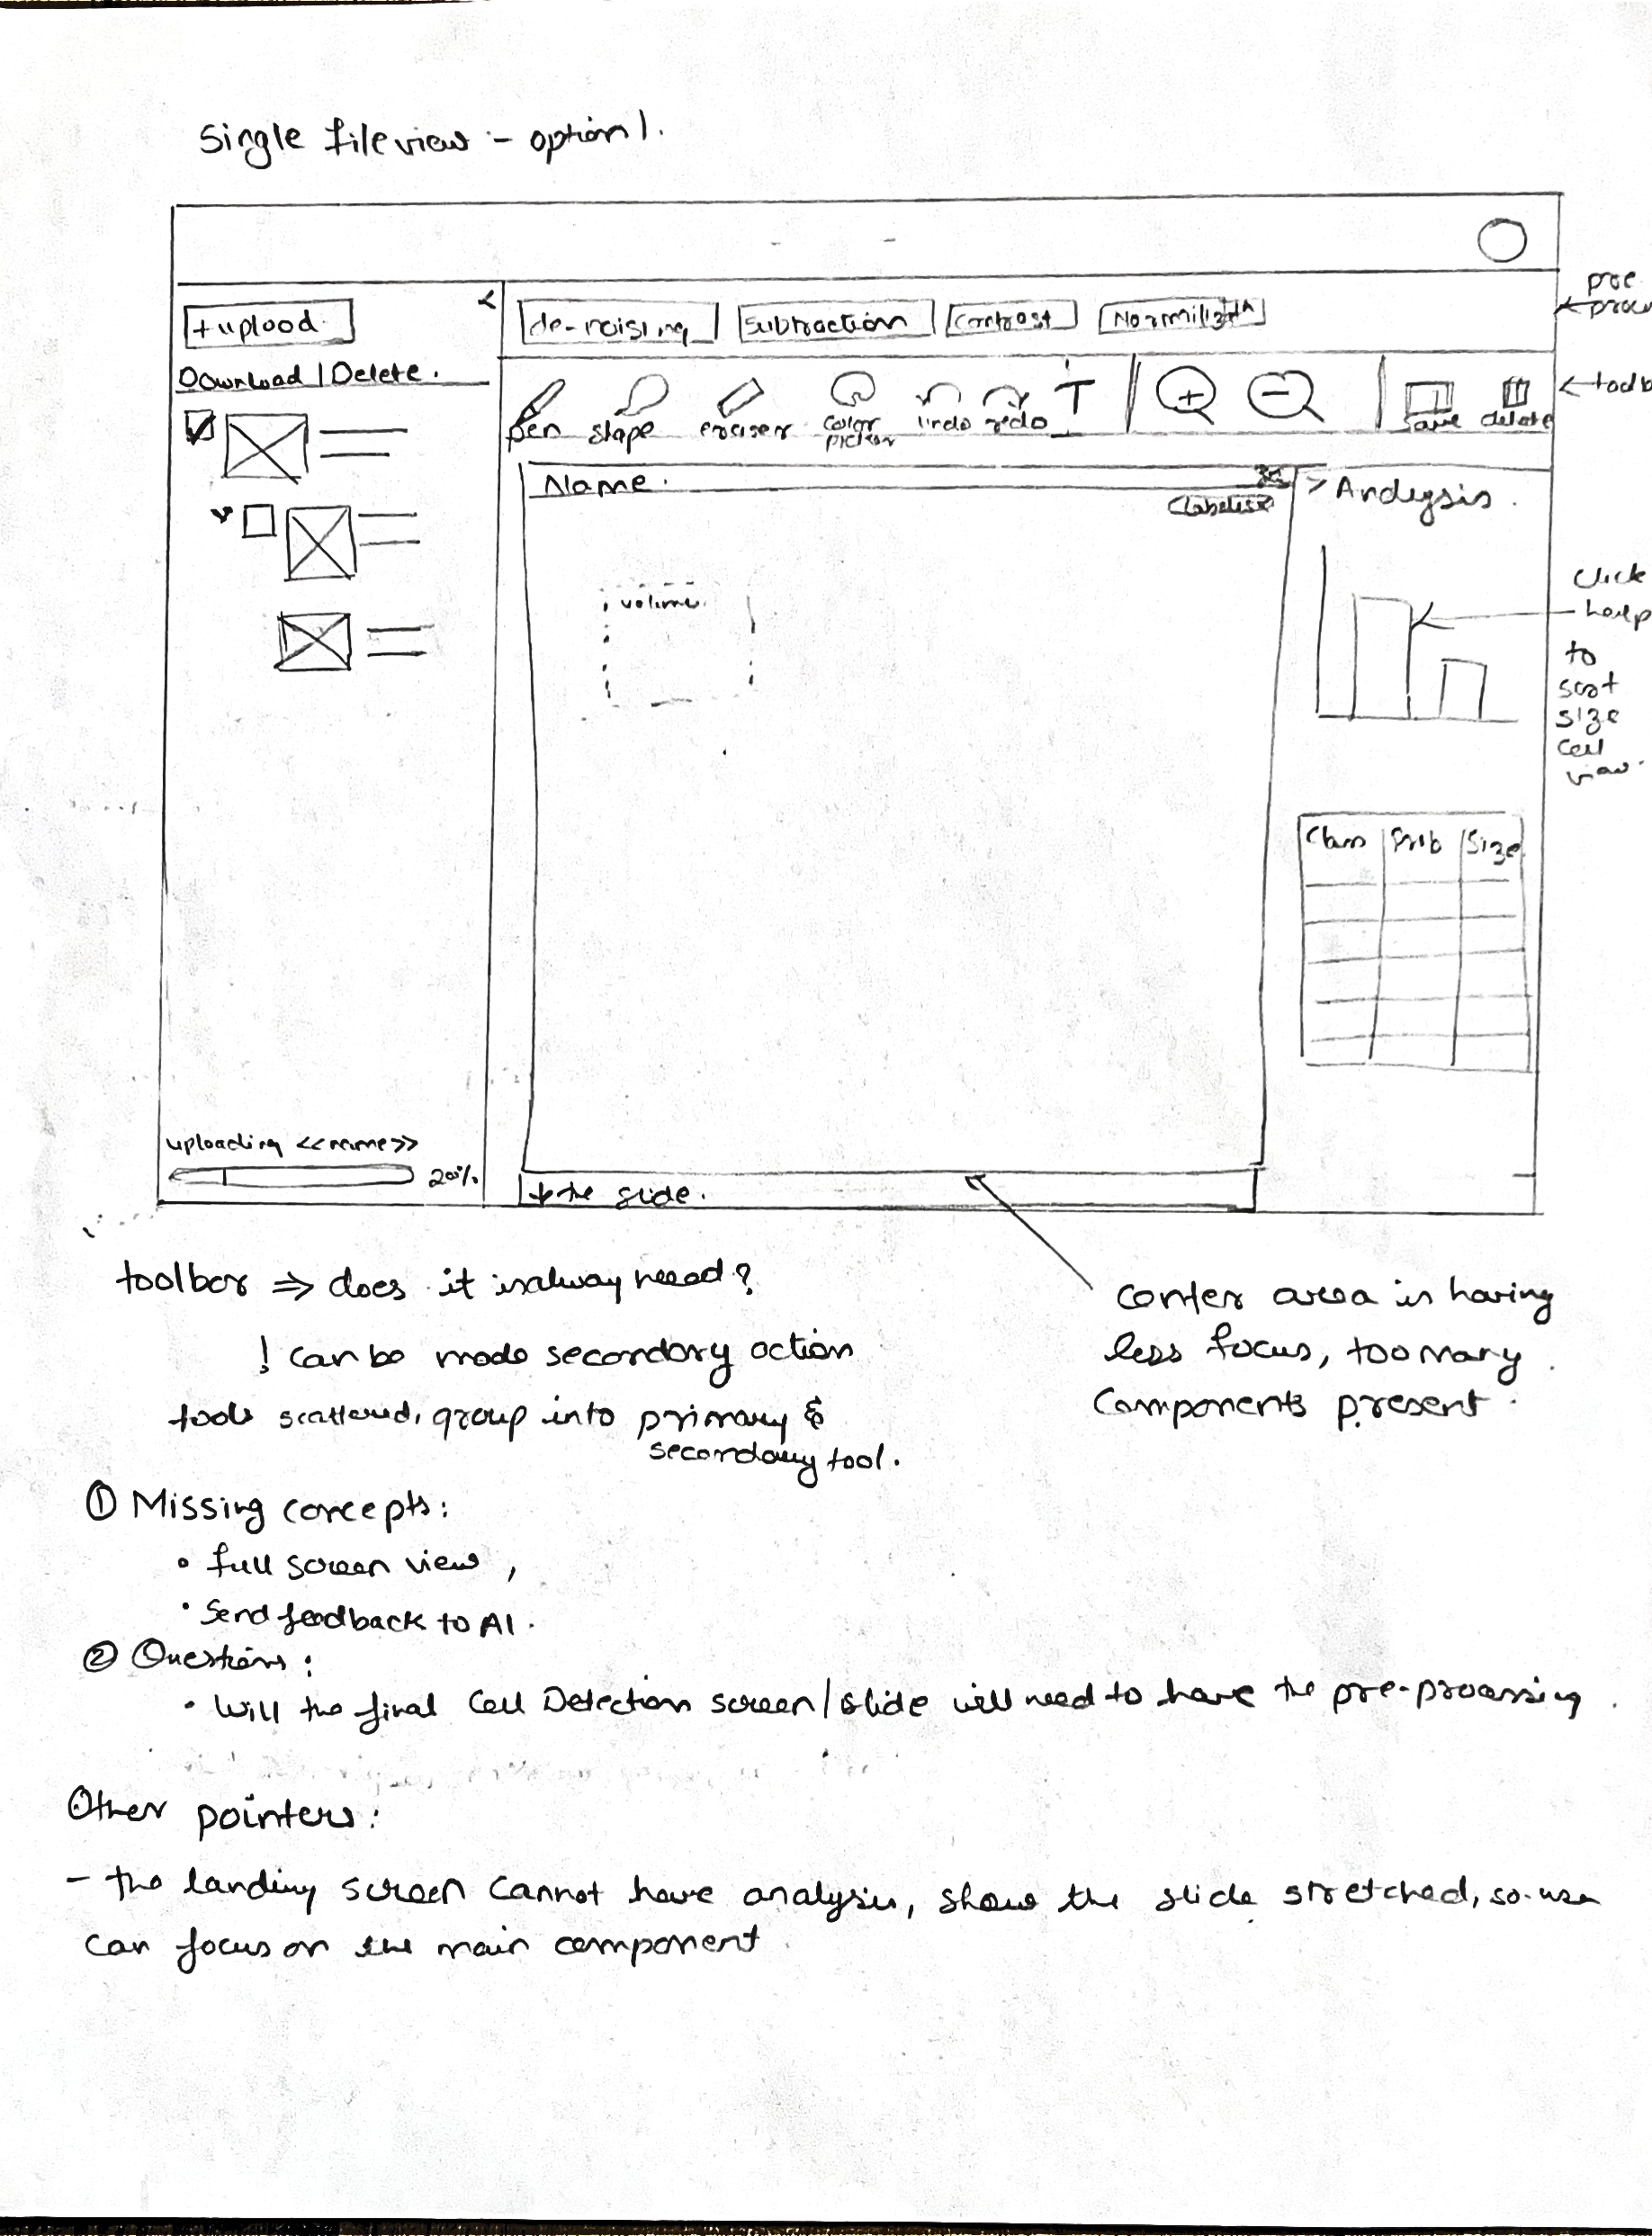 Single file view :- option 1.
+ upload
<
de-noising
Subtraction
Contrast
pre
Download | Delete.
pen
shape
eraser
color
picker
undo
redo
T
save
delete
Name.
> Analysis.
volume.
click
help
to
sort
size
cell
view.
Class
Prob
Size
uploading <<name>>
20%
slide.
toolbar ⇒ does it
need?
! can be made secondary action
tools scattered, group into primary &
secondary tool.
center area is having
less focus, too many
Components present.
① Missing concepts:
• full screen view,
• Send feedback to AI.
② Questions:
• Will the final Cell Detection screen/slide will need to have the pre-processing.
Other pointers:
- the landing screen cannot have analysis, show the slide stretched, so
can focus on the main component.